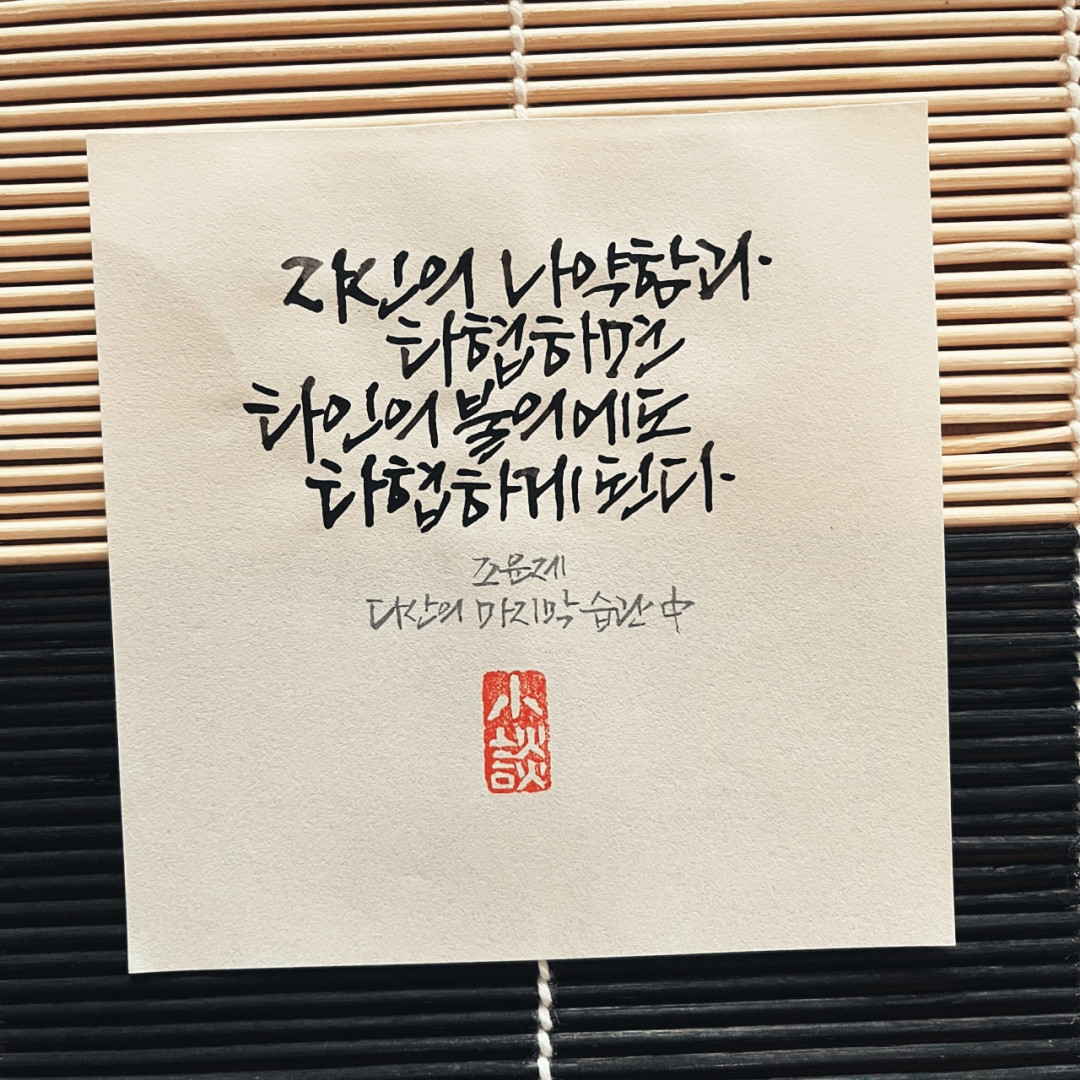 자신의 나약함과
타협하면
타인의 불의에도
타협하게 된다.
조윤제
다산의 마지막 습관 中
小
談